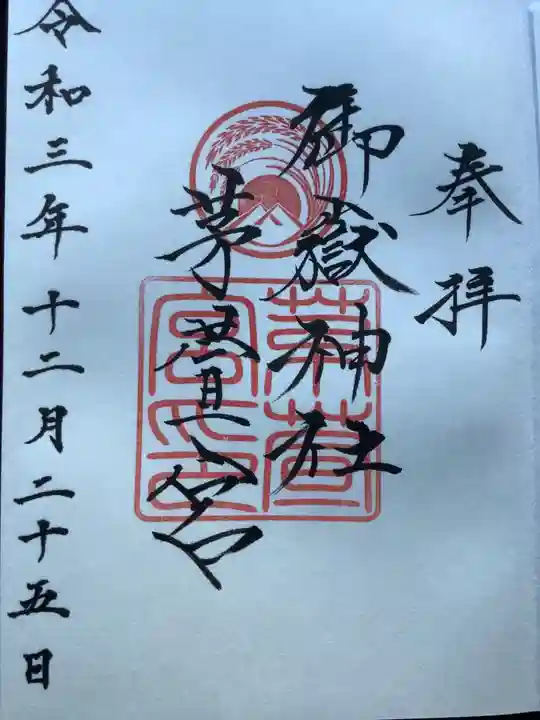 奉拝
御嶽神社
茅萱宮
令和三年十二月二十五日
茅萱宮之印